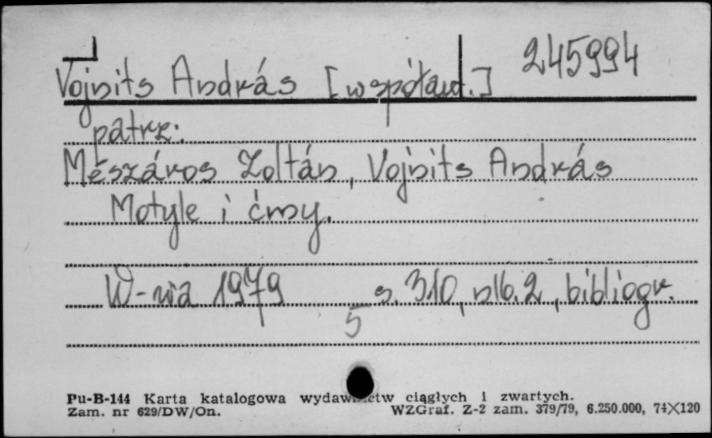 Vojnits András [współaut.] 245994
patrz:
Mészáros Zoltán, Vojnits András
Motyle i ćmy.
W-wa 1979 s. 310, nlb. 2, bibliogr.
5
Pu-B-144 Karta katalogowa wydawnictw ciągłych i zwartych.
Zam. nr 629/DW/On. WZGraf. Z-2 zam. 379/79, 6.250.000, 74×120